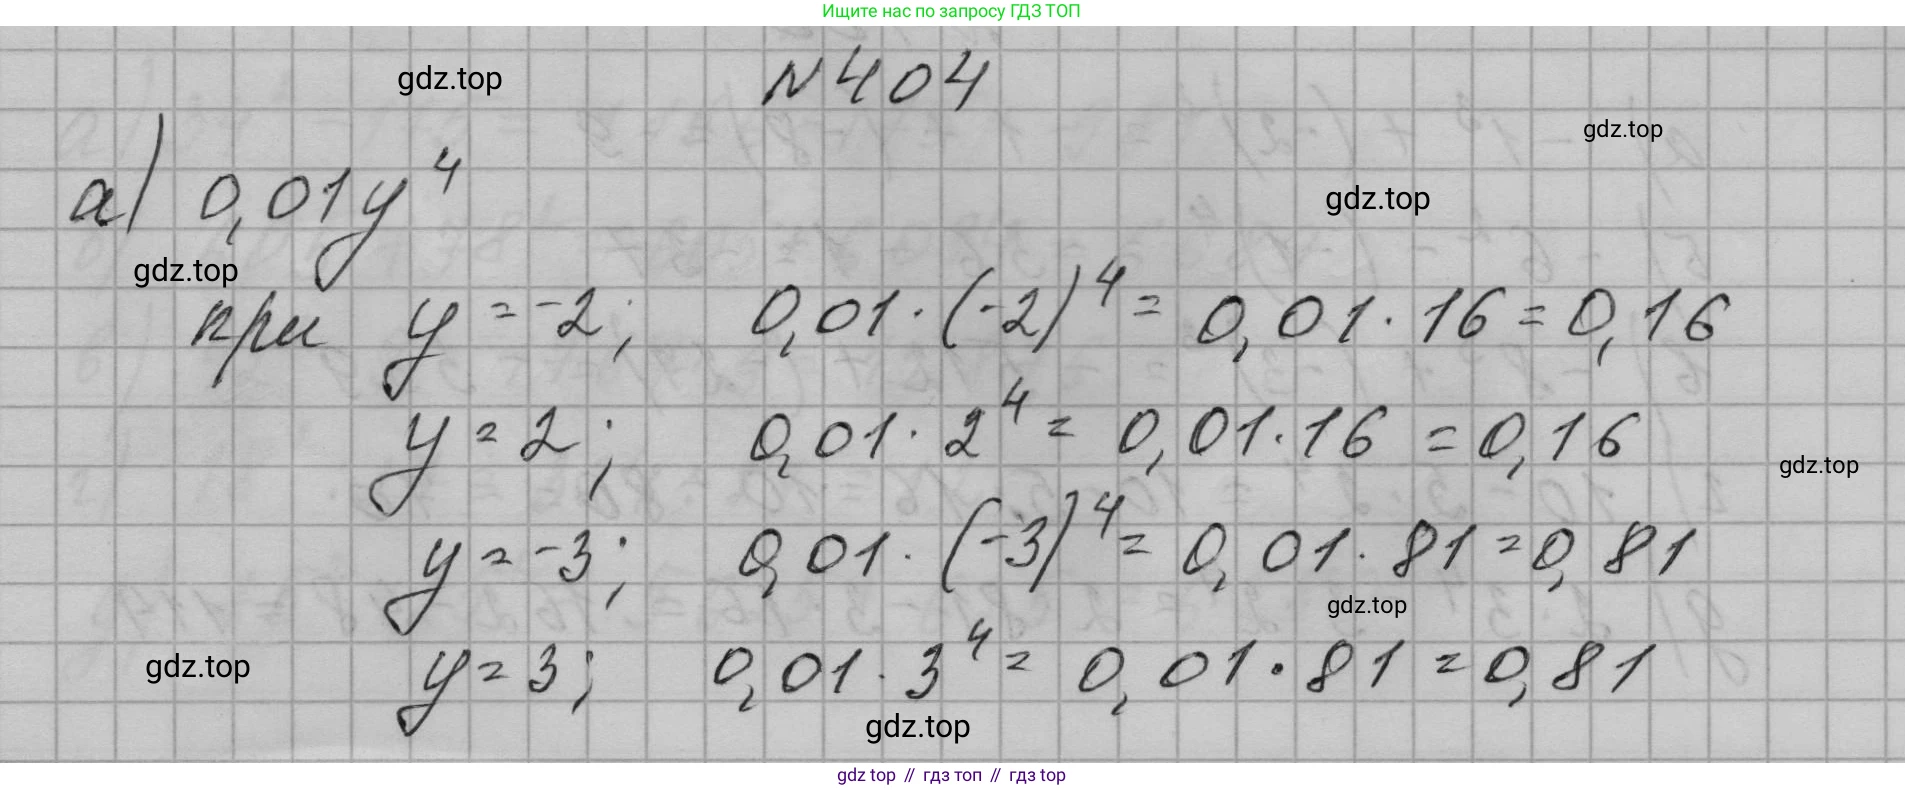 Ищите нас по запросу ГДЗ ТОП
N404
gdz.top
gdz.top
а) 0,01y⁴
gdz.top
gdz.top
при y = -2; 0,01 · (-2)⁴ = 0,01 · 16 = 0,16
y = 2; 0,01 · 2⁴ = 0,01 · 16 = 0,16
gdz.top
y = -3; 0,01 · (-3)⁴ = 0,01 · 81 = 0,81
gdz.top
y = 3; 0,01 · 3⁴ = 0,01 · 81 = 0,81
gdz.top
gdz.top
gdz top // гдз топ // гдз top